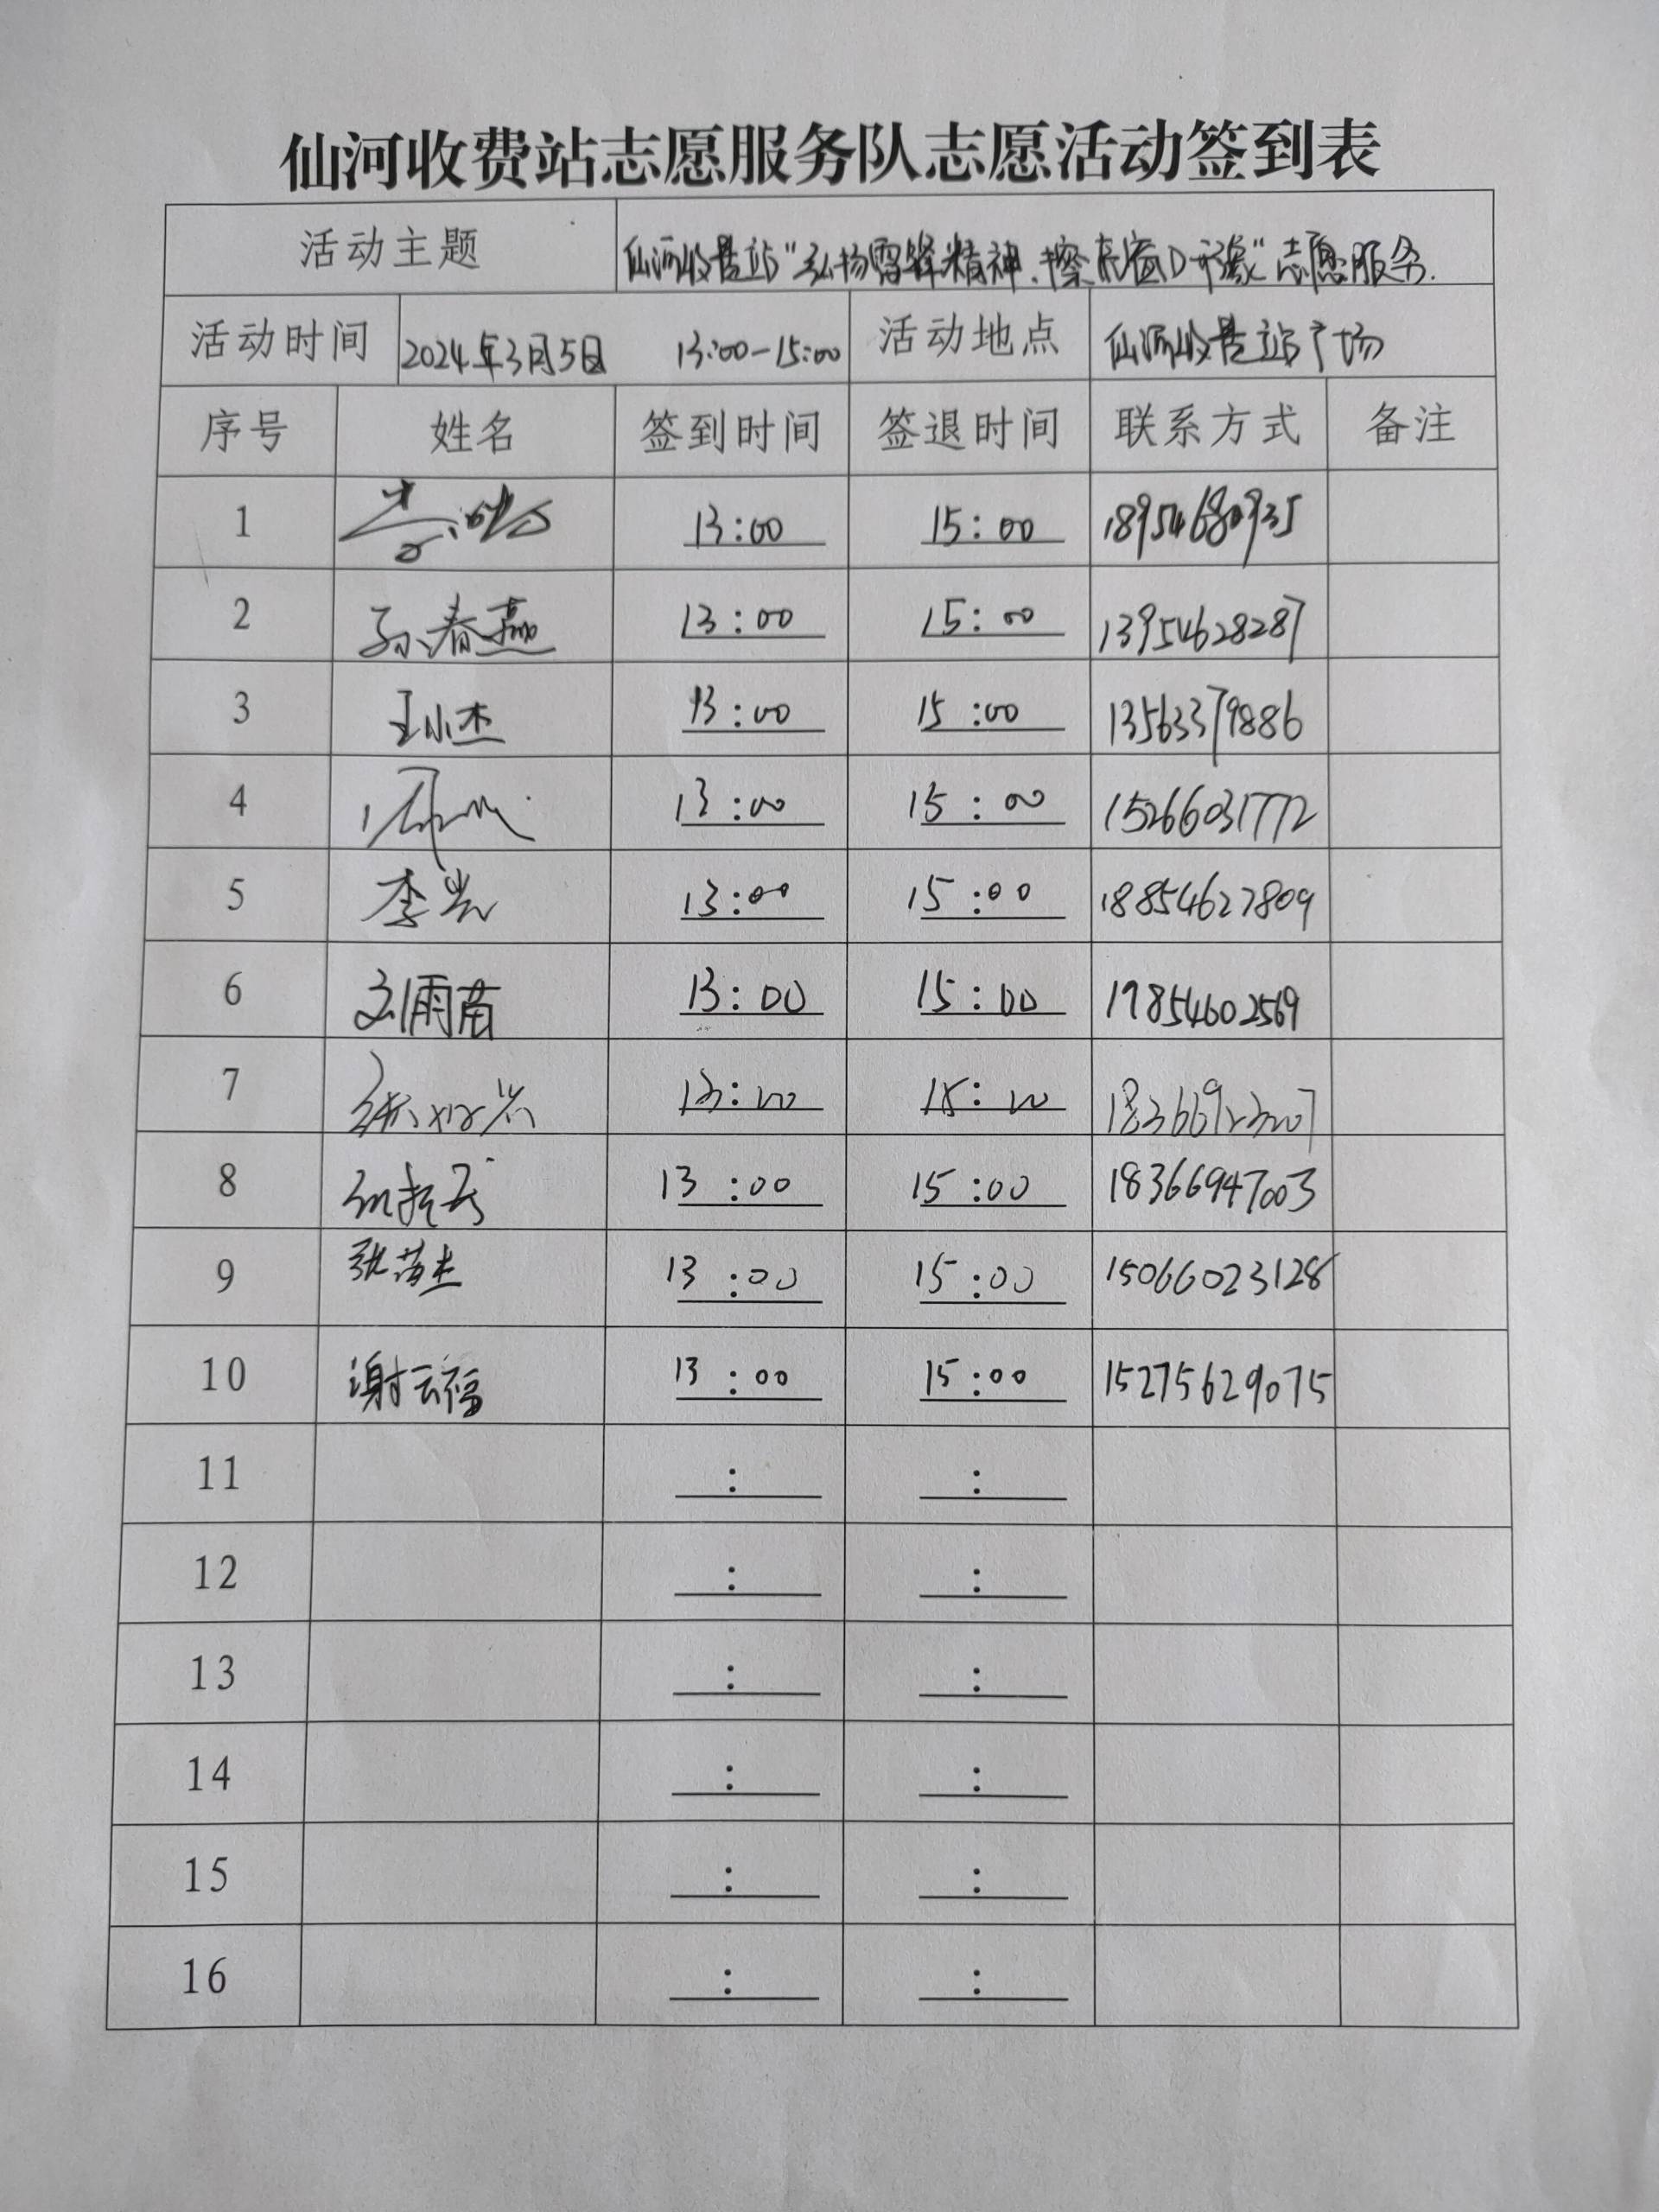 仙河收费站志愿服务队志愿活动签到表
活动主题 仙河收费站"弘扬雷锋精神.擦亮窗口形象"志愿服务.
活动时间 2024年3月5日 13:00-15:00 活动地点 仙河收费站广场
序号 姓名 签到时间 签退时间 联系方式 备注
1 13:00 15:00 18954680935
2 孙春燕 13:00 15:00 13954628287
3 王小杰 13:00 15:00 13563379886
4 13:00 15:00 15266031772
5 李岩 13:00 15:00 18854627809
6 刘雨苗 13:00 15:00 17854602569
7 13:00 15:00
8 13:00 15:00 18366947003
9 13:00 15:00 15066023128
10 谢云福 13:00 15:00 15275629075
11 : :
12 : :
13 : :
14 : :
15 : :
16 : :